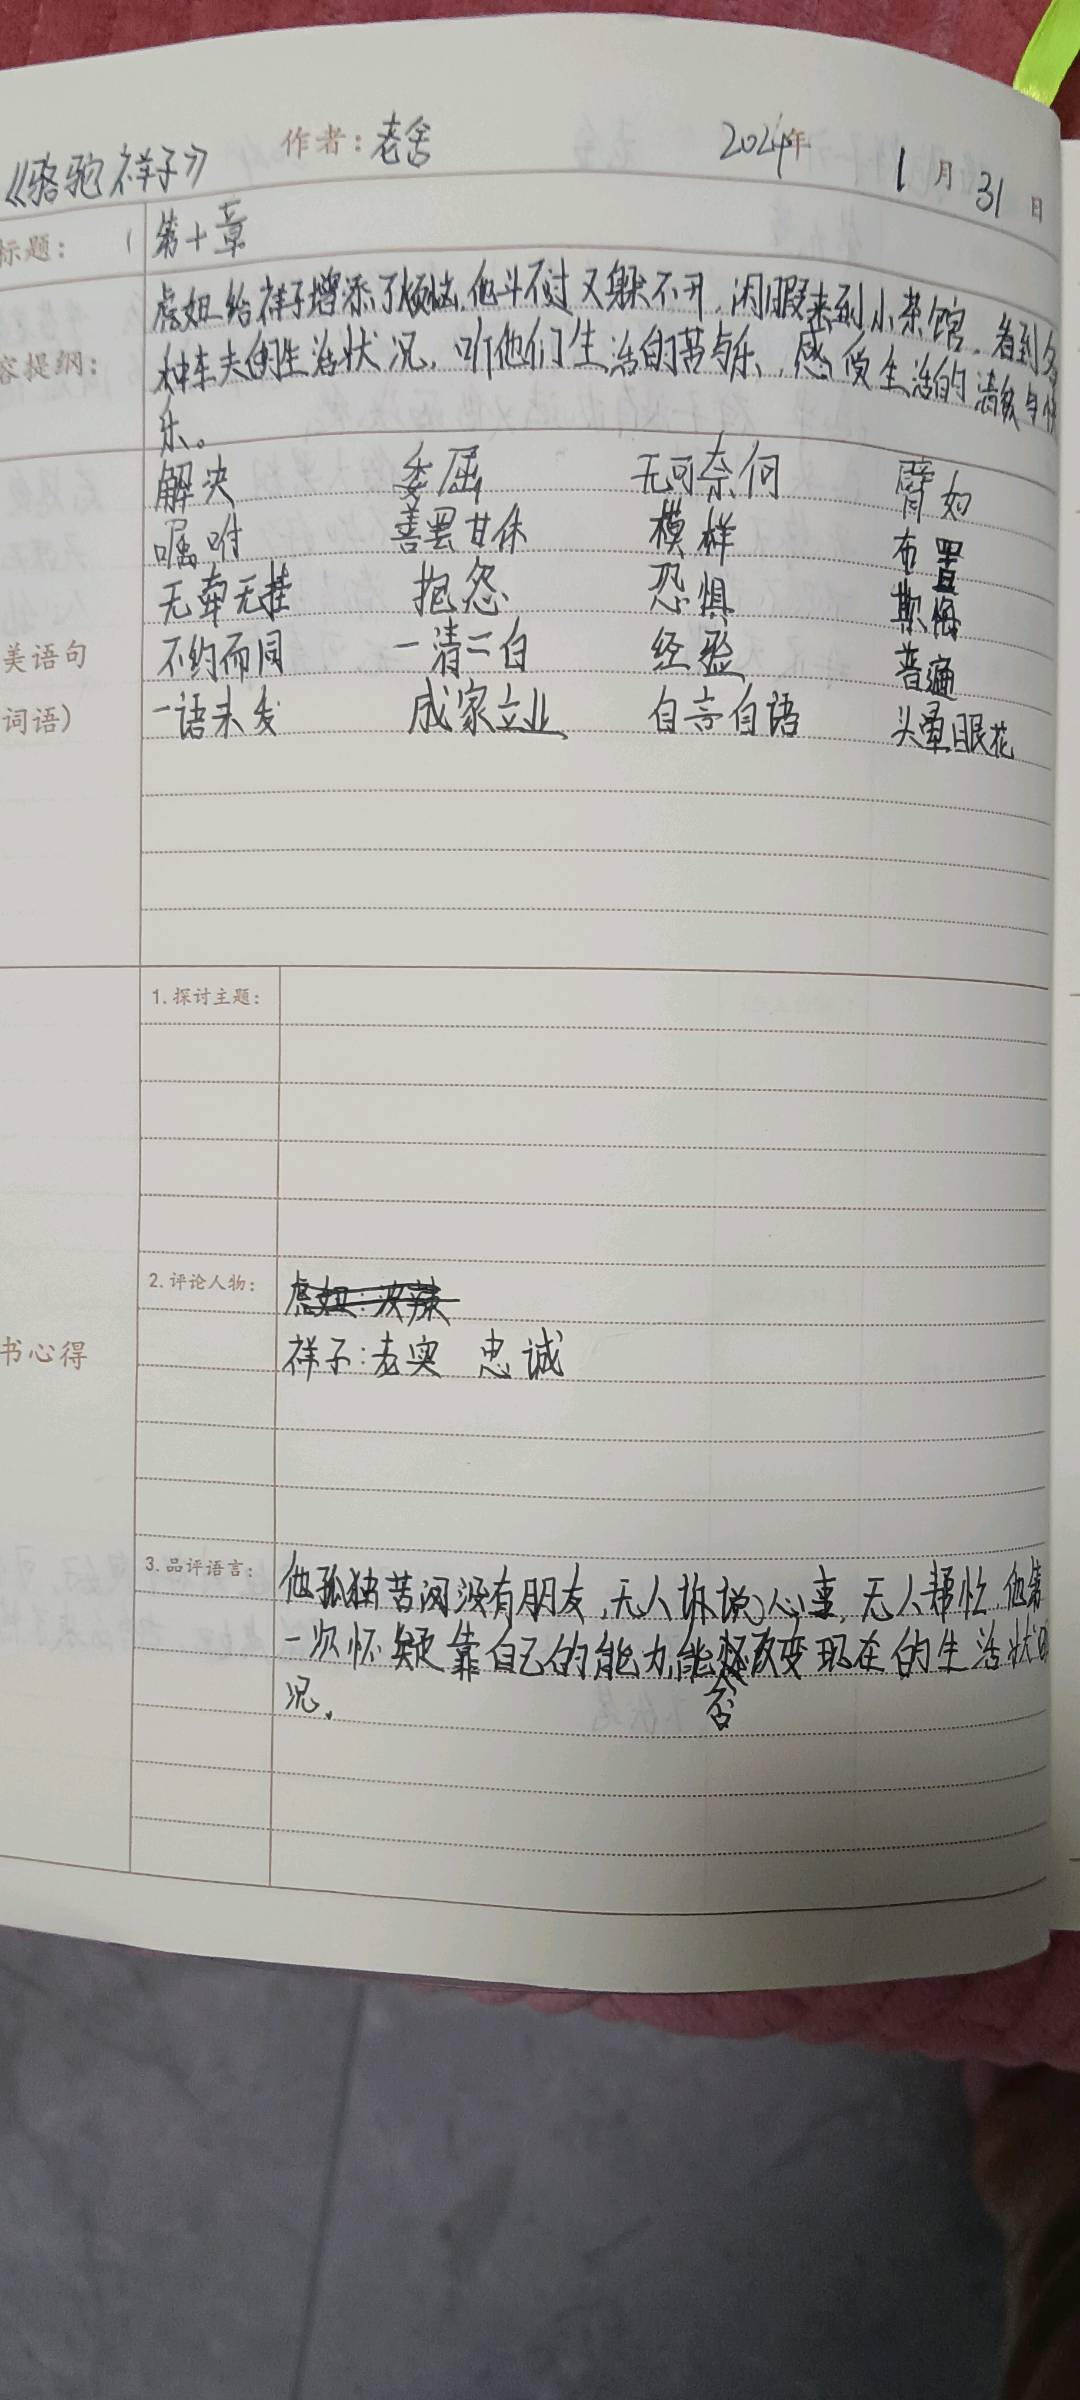 《骆驼祥子》 作者：老舍 2024年 1月31日
标题： 第十章
虎妞给祥子增添了烦恼,他斗不过又躲不开，闲暇来到小茶馆，看到各
容提纲： 种车夫的生活状况，听他们生活的苦与乐，感受生活的清贫与快
乐。
解决 委屈 无可奈何 臂如
嘱咐 善罢甘休 模样 布置
无牵无挂 抱怨 恐惧 欺侮
美语句 不约而同 一清二白 经验 普遍
词语） 一语未发 成家立业 自言自语 头晕眼花
1.探讨主题：
2.评论人物： 虎妞：泼辣
书心得 祥子：老实 忠诚
3.品评语言： 他孤独苦闷没有朋友，无人诉说心事，无人帮忙，他第
一次怀疑靠自己的能力,能否改变现在的生活状
况。